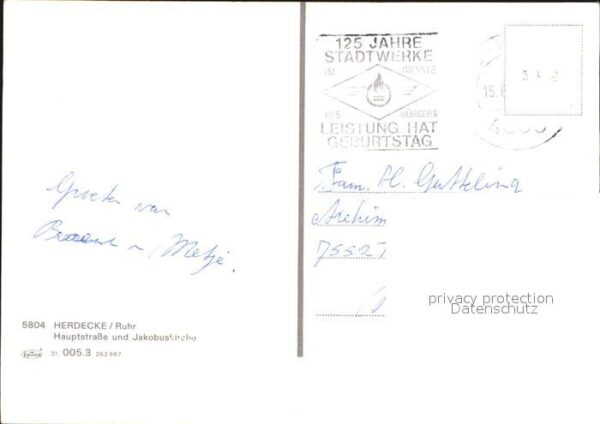 125 JAHRE
STADTWERKE
IM DIENSTE
DES BÜRGERS
LEISTUNG HAT
GEBURTSTAG
15.
Fam. H. Gutteling
Arehim
7552
Groeten van
Metje.
privacy protection
Datenschutz
5804 HERDECKE/Ruhr
Hauptstraße und Jakobuskirche
31 005.3 262987